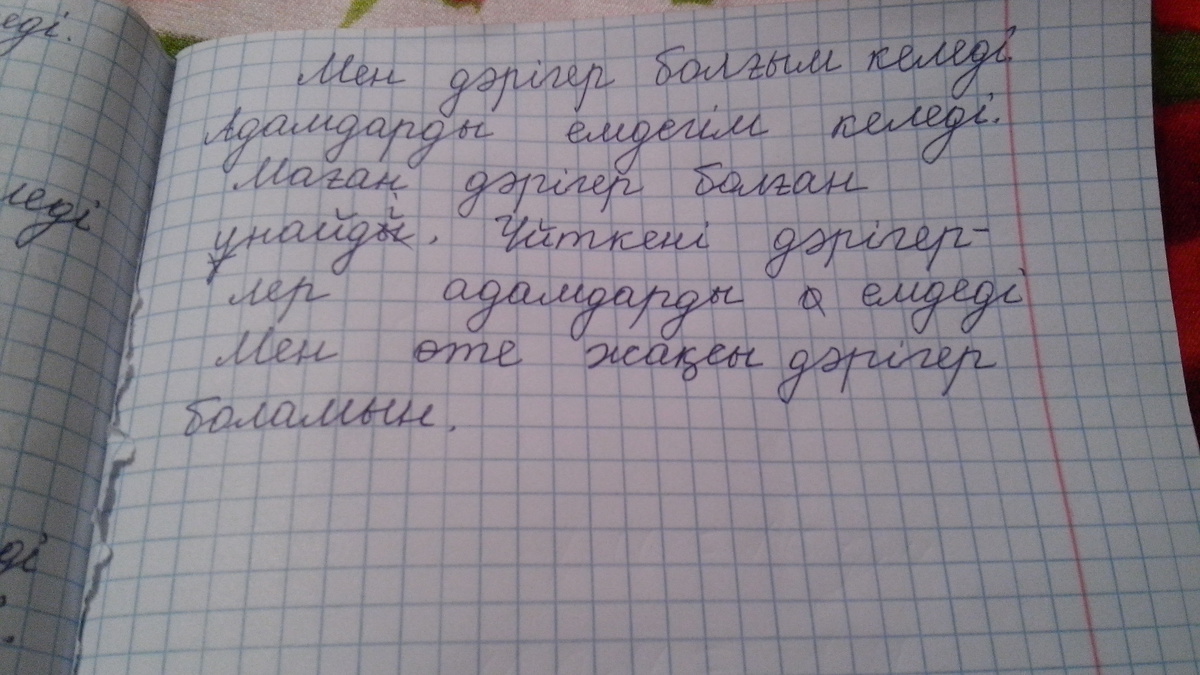 еді.
Мен дәрігер болғым келеді.
Адамдарды емдегім келеді.
Маған дәрігер болған
леді
ұнайды. Үйткені дәрігер-
лер адамдарды емдеді
Мен өте жақсы дәрігер
боламын.
ді